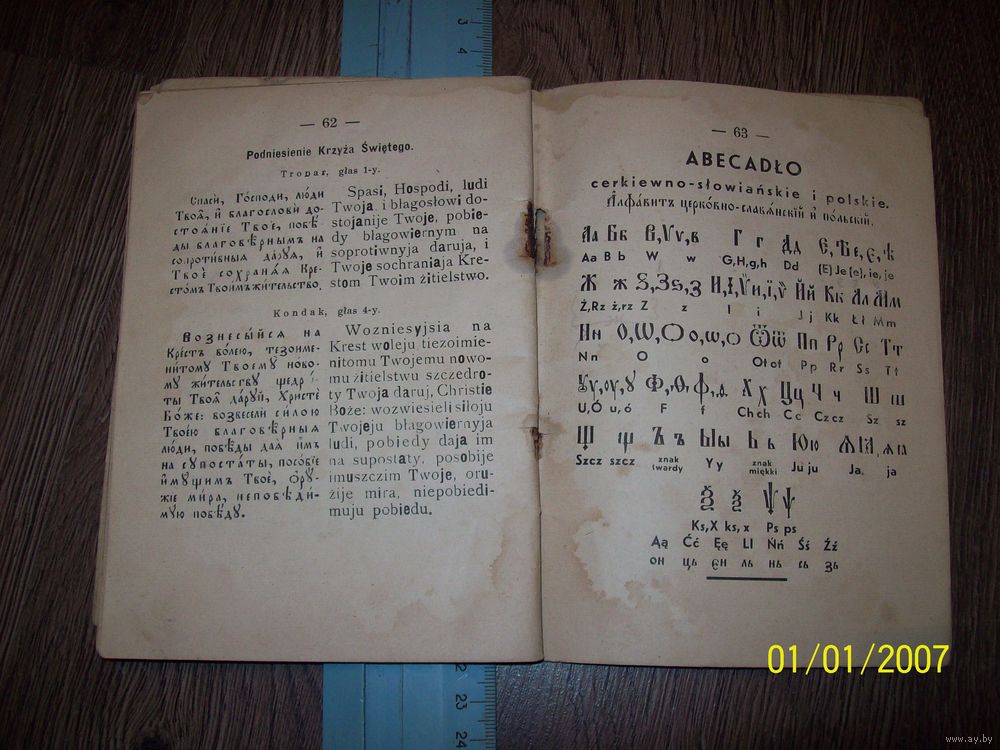 — 62 —
Podniesienie Krzyża Świętego.
Tropar, głas 1-y.
Спаси, Го́споди, лю́ди
Твоѧ̑, и҆ благослови̑ до-
стоѧ́нїе Твоѐ, побѣ́-
ды благовѣ̑рнымъ на
сопроти̑вныѧ да́рꙋѧ, и҆
Твоѐ сохранѧ́ѧ Кре-
сто́мъ Твои́мъ жи́тельство.
Spasi, Hospodi, ludi
Twoja, i błagosłowi do-
stojanije Twoje, pobie-
dy błagowiernym na
soprotiwnyja daruja, i
Twoje sochraniaja Kre-
stom Twoim žitielstwo.
Kondak, głas 4-y.
Вознесы́йсѧ на
Кре́стъ во́лею, тезоиме-
ни́тому Твоемꙋ̀ но́во-
мꙋ жи́тельствꙋ щедрѡ́-
ты Твоѧ̑ да́рꙋй, Христѐ
Бо́же: возвеселѝ си́лою
Твоє́ю благовѣ̑рныѧ
лю́ди, побѣ́ды даѧ̀ и҆̀мъ
на сꙋпоста́ты, посо́бїе
и҆мꙋ́щимъ Твоѐ, ѻ҆рꙋ́-
жїе ми́ра, непобѣди́-
мꙋю побѣ́дꙋ.
Wozniesyjsia na
Krest woleju tiezoimie-
nitomu Twojemu nowo-
mu žitielstwu szczedro-
ty Twoja daruj, Christie
Boże: wozwiesieli siłoju
Twojeju błagowiernyja
ludi, pobiedy daja im
na supostaty, posobije
imuszczim Twoje, oru-
žije mira, niepobiedi-
muju pobiedu.
— 63 —
ABECADŁO
cerkiewno-słowiańskie i polskie.
А҆лфа́витъ церко́вно-слав́ѧнскїй и҆ по́льскїй.
Аа Бб В,Ѵѵ,в Г г Дд Є,Ѣе,є,ѣ
Aa B b W w G,H,g,h Dd (E) Je (e), ie, je
Ж ж Ѕ,Зѕ,з И,І,Ѷи,ї,ѷ Йй Кк Лл Мм
Ż,Rz ż,rz Z z I i J j Kk Ł ł Mm
Нн О,Ѡ,Ѻо,ѡ,ѻ Ѿѿ Пп Рр Сс Тт
Nn O o Ot ot Pp Rr Ss Tt
Ꙋу,оу,ꙋ Ф,Ѳ,ф,ѳ Х х Цц Ч ч Ш ш
U,Ó u,ó F f Ch ch Cc Cz cz Sz sz
Щ щ Ъ ъ Ыы Ь ь Юю ѨꙖ,ѧꙗ
Szcz szcz znak twardy Y y znak miękki Ju ju Ja, ja
Ѯ ѯ Ѱѱ
Ks,X ks,x Ps ps
Ąą Ćć Ęę Ll Ńń Śś Źź
он ць єн ль нь сь зь
3 4
22 23 24
01/01/2007
www.ay.by